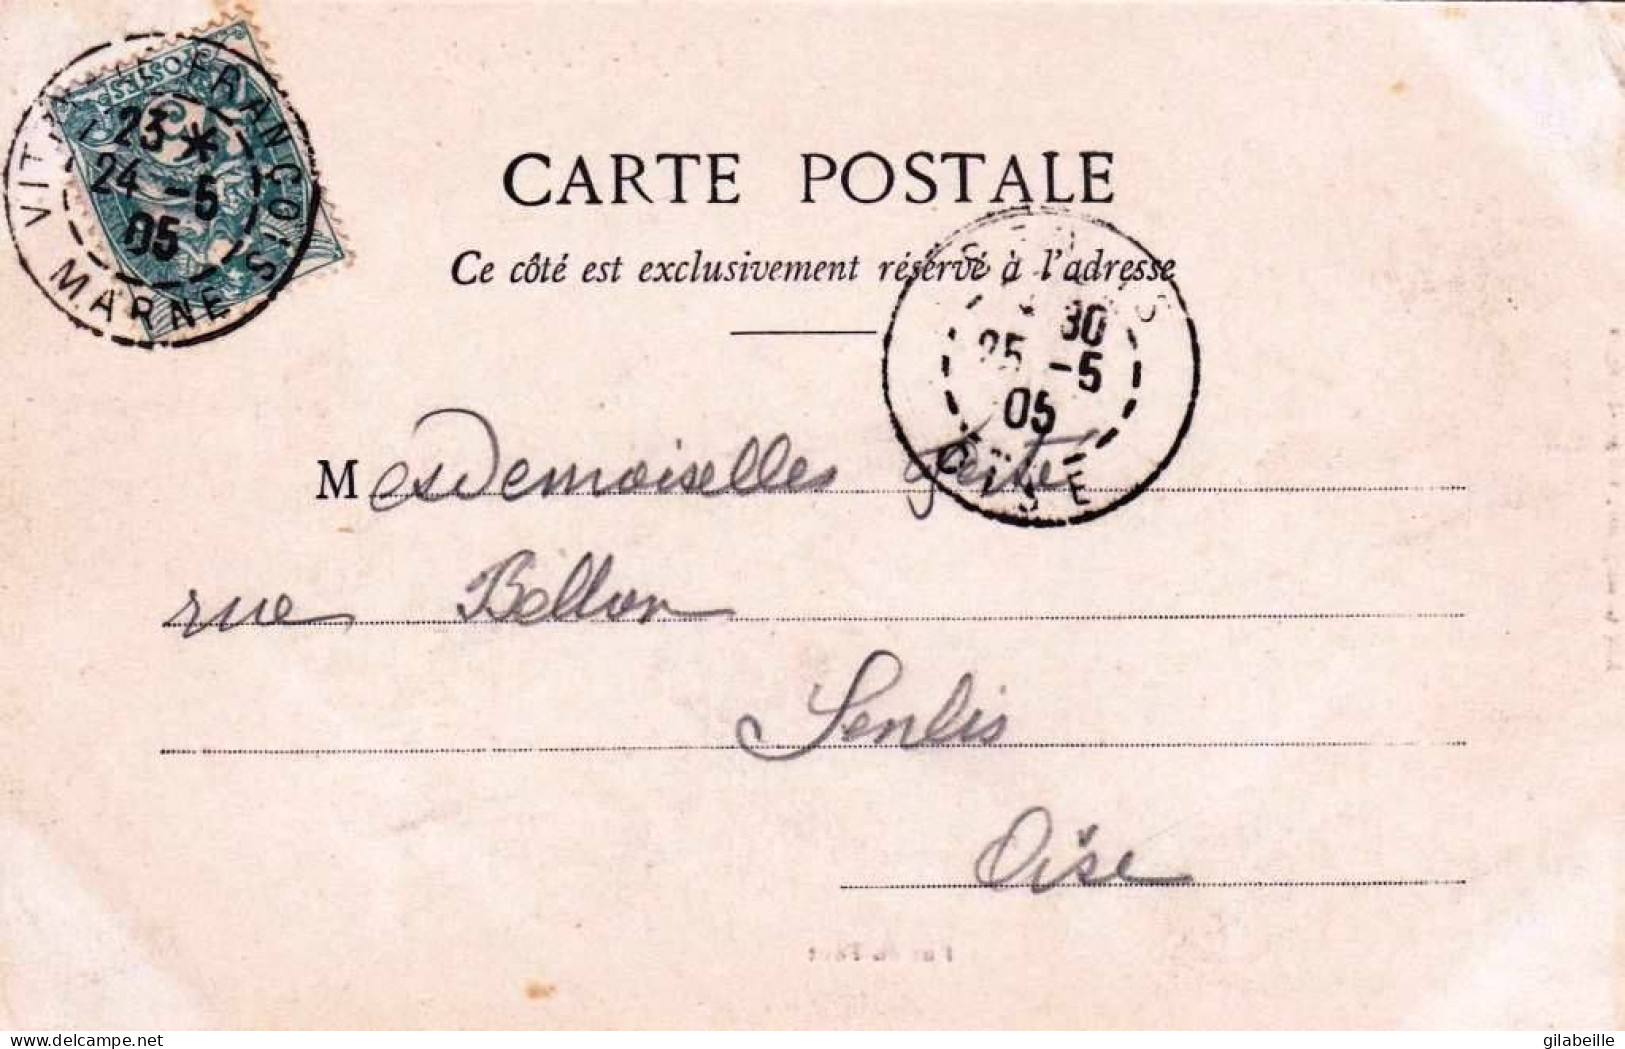 POSTES
VITRY-LE-FRANÇOIS
23 *
24 -5
05
MARNE
CARTE POSTALE
Ce côté est exclusivement réservé à l'adresse
SENLIS
30
25 -5
05
OISE
Mesdemoiselles Genté
rue Bellon
Senlis
Oise
gilabeille